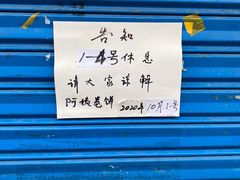 告知
1-4号休息
请大家谅解
阿姨卷饼 2020年10月1号